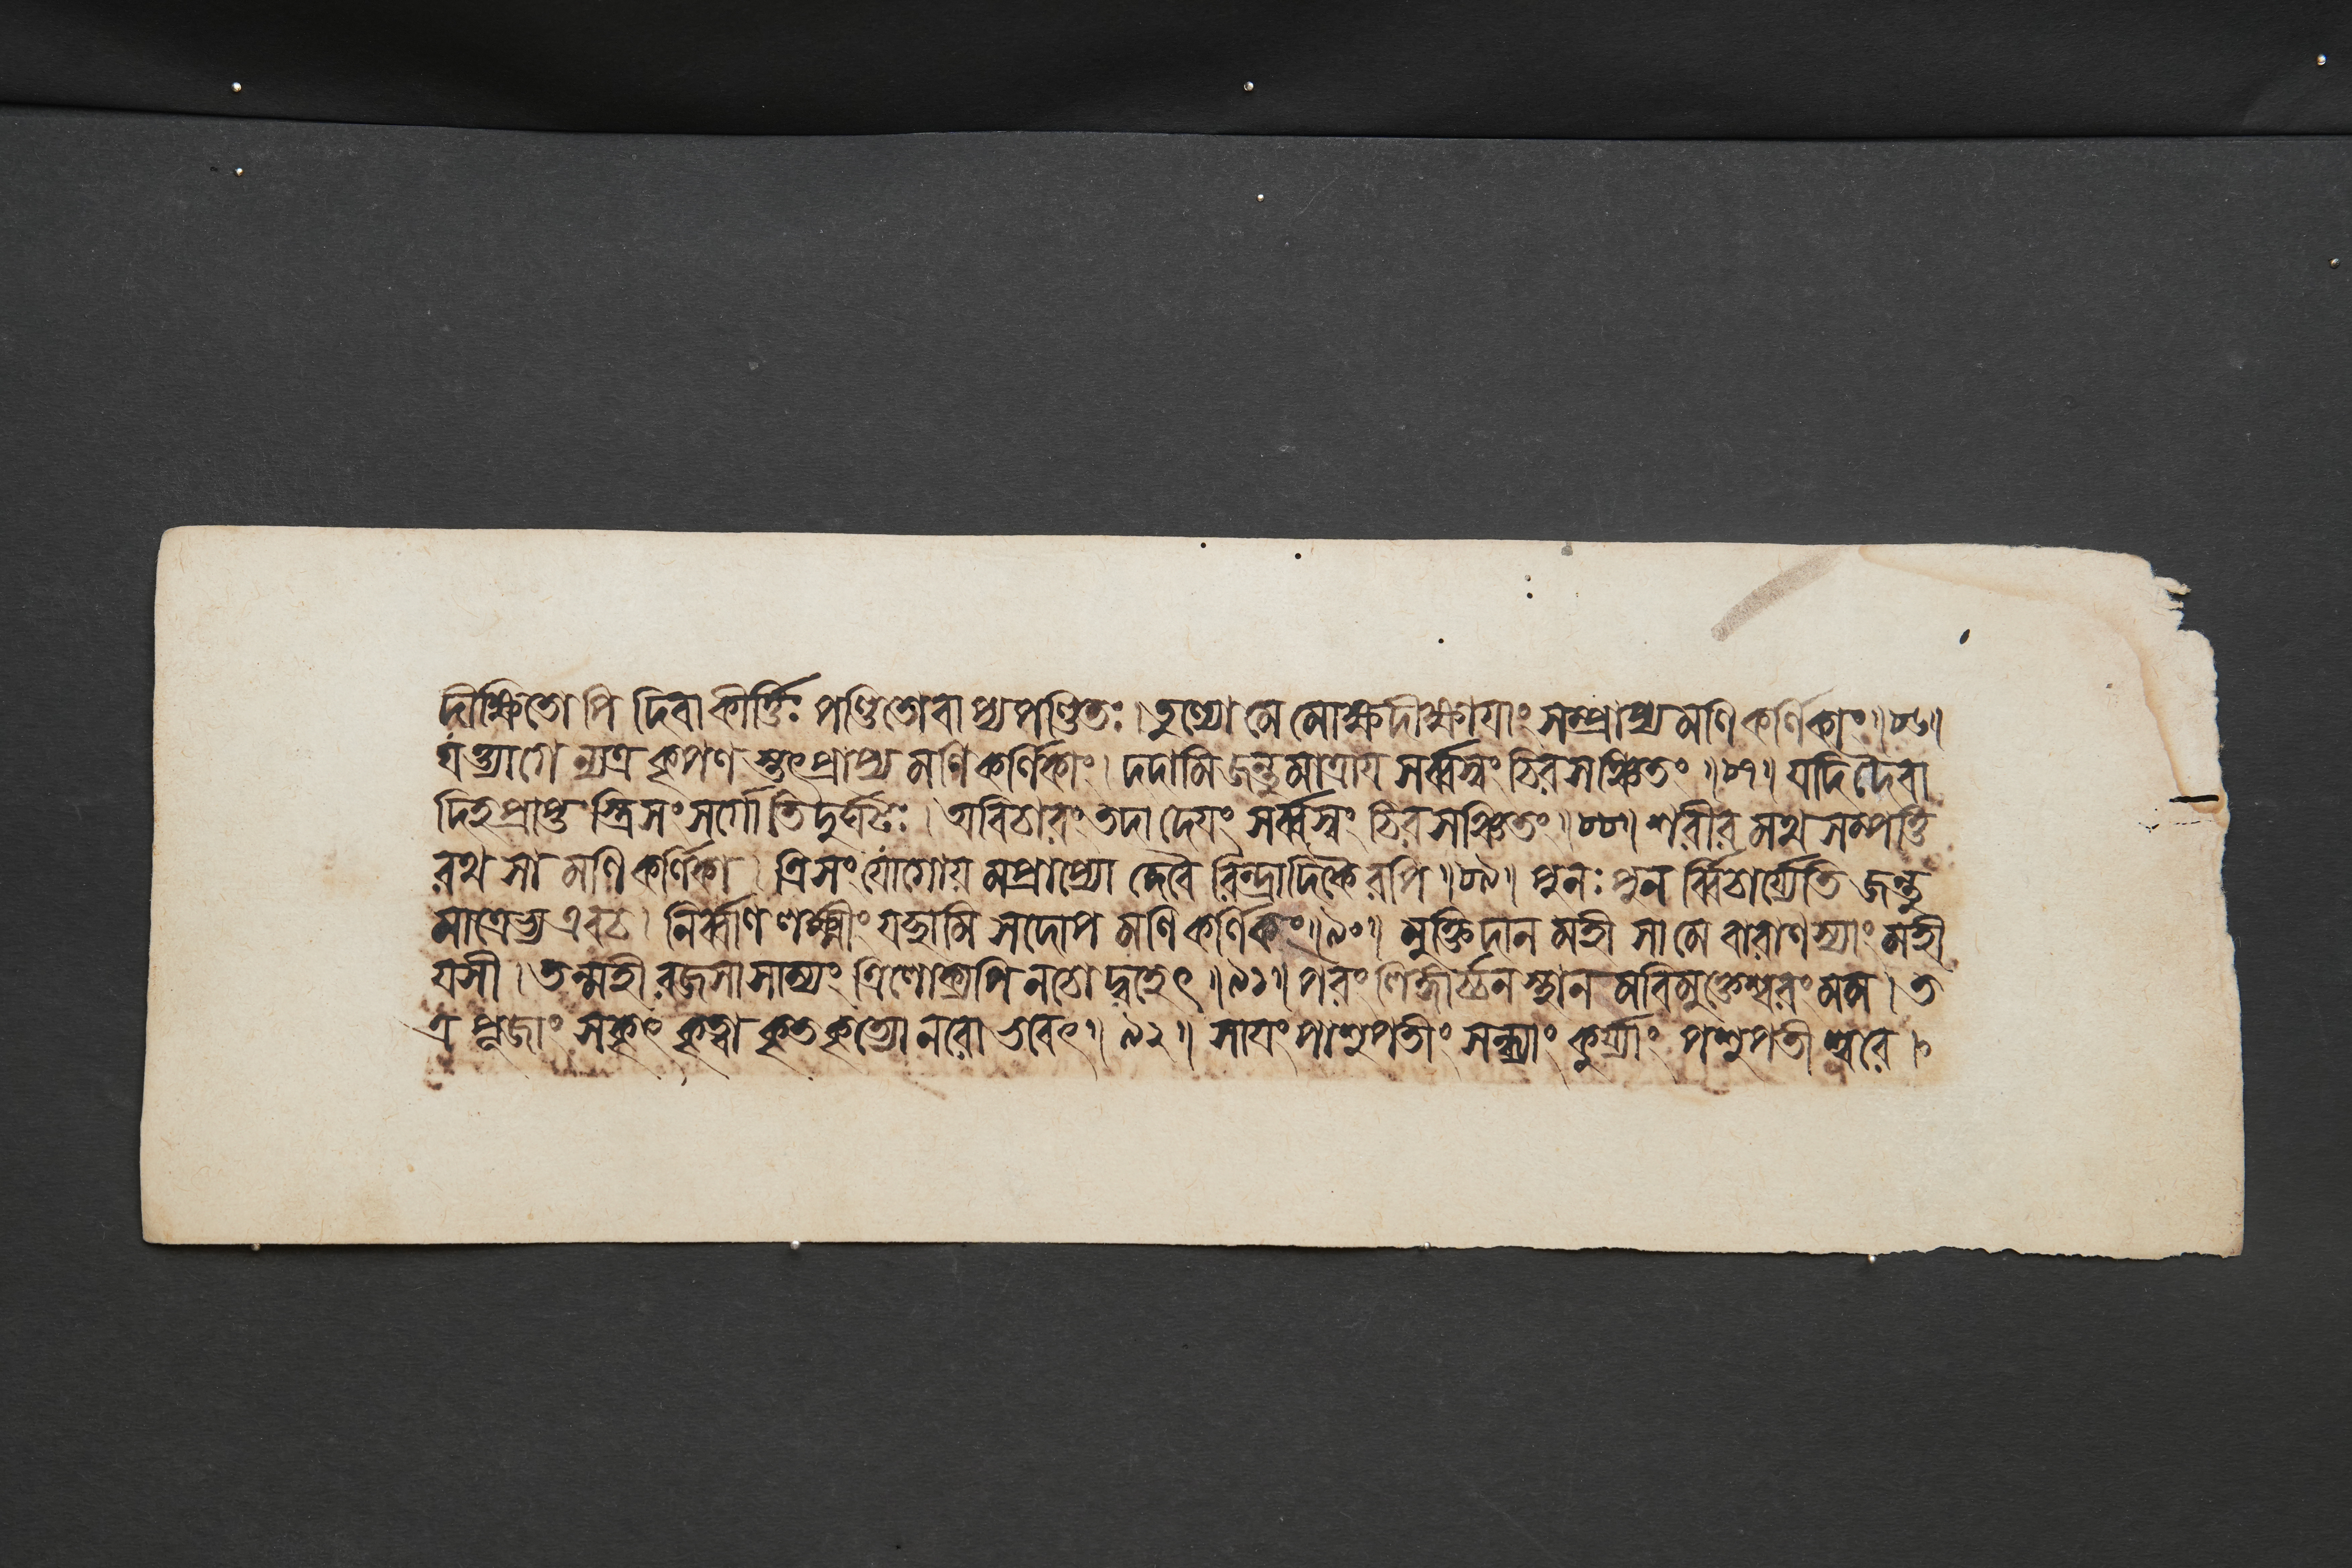 দীক্ষিতো পি দিবাকীর্ত্তিঃ পণ্ডিতোবাপ্যপণ্ডিতঃ । তুল্যো মে মোক্ষদীক্ষায়াং সম্প্রাপ্য মণিকর্ণিকাং ॥ ৮৬ ॥
যত্ত্যাগে ন্যত্র কৃপণ স্তৎপ্রাপ্য মণিকর্ণিকাং । দদামি জন্তুমাত্রায় সর্ব্বস্বং চিরসঞ্চিতং ॥ ৮৭ ॥ যদি দৈবা
দিহ প্রাপ্ত স্ত্রিসংসর্গোতিদুর্ঘটঃ । অবিচারং তদা দেয়ং সর্ব্বস্বং চিরসঞ্চিতং ॥ ৮৮ ॥ শরীর মথ সম্পত্তি
রথ সা মণিকর্ণিকা । ত্রিসংযোগোয় মপ্রাপ্যো দেবৈ রিন্দ্রাদিকৈ রপি ॥ ৮৯ ॥ পুনঃ পুন র্ব্বিচার্য্যেতি জন্তু
মাত্রেভ্য এবচ । নির্ব্বাণলক্ষ্মীং যচ্ছামি সদোপ মণিকর্ণিকং ॥ ৯০ ॥ মুক্তিদান মহী সা মে বারাণস্যাং মহী
যসী । তন্মহী রজসা সাম্যং ত্রিলোক্যপি নচোদ্বহেৎ ॥ ৯১ ॥ পরং লিঙ্গার্চ্চনস্থান মবিমুক্তেশ্বরং মম । ত
ত্র পূজাং সকৃৎ কৃত্বা কৃতকৃত্যো নরো ভবেৎ ॥ ৯২ ॥ সায়ং পাশুপতীং সন্ধ্যাং কুর্য্যাং পশুপতীশ্বরে ।